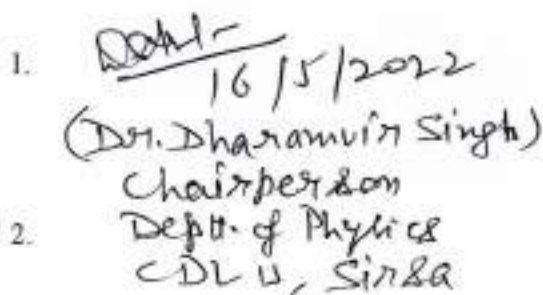 1.
16/5/2022
(Dr. Dharamvir Singh)
Chairperson
2. Deptt. of Physics
CDLU, Sirsa